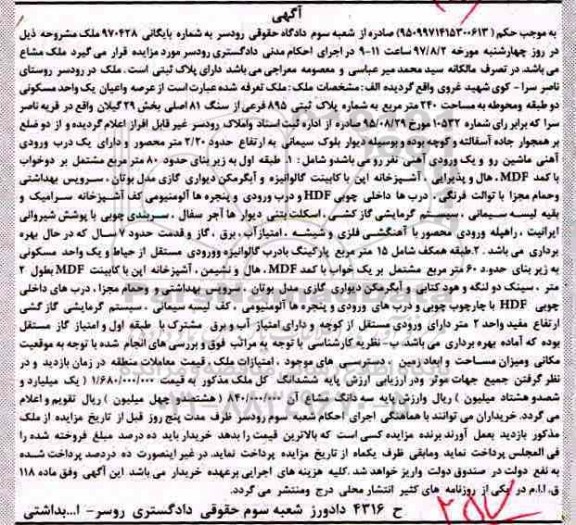 آگهی
به موجب حکم (۹۵۰۹۹۷۱۴۱۵۳۰۰۶۱۳) صادره از شعبه سوم دادگاه حقوقی رودسر به شماره بایگانی ۹۷۰۴۲۸ ملک مشروحه ذیل
در روز چهارشنبه مورخه ۹۷/۸/۲ ساعت ۱۱-۹ در اجرای احکام مدنی دادگستری رودسر مورد مزایده قرار می گیرد ملک مشاع
می باشد. در تصرف مالکانه سید محمد میر عباسی و معصومه معراجی می باشد دارای پلاک ثبتی است. ملک در رودسر روستای
ناصر سرا - کوی شهید غروی واقع گردیده الف: مشخصات ملک: ملک تعرفه شده عبارت است از عرصه واعیان یک واحد مسکونی
دو طبقه ومحوطه به مساحت ۲۴۰ متر مربع به شماره پلاک ثبتی ۸۹۵ فرعی از سنگ ۸۱ اصلی بخش ۲۹ گیلان واقع در قریه ناصر
سرا که برابر رای شماره ۱۰۵۳۲ مورخ ۹۵/۰۸/۲۹ صادره از اداره ثبت اسناد واملاک رودسر غیر قابل افراز اعلام گردیده و از دو ضلع
بر همجوار جاده آسفالته و کوچه بوده و بوسیله دیوار بلوک سیمانی به ارتفاع حدود ۲/۲۰ متر محصور و دارای یک درب ورودی
آهنی ماشین رو و یک ورودی آهنی نفر رو می باشد و شامل : ۱. طبقه اول به زیر بنای حدود ۸۰ متر مربع مشتمل بر دوخواب
با کمد MDF ، هال و پذیرایی ، آشپزخانه اپن با کابینت گالوانیزه و آبگرمکن دیواری گازی مدل بوتان ، سرویس بهداشتی
وحمام مجزا با توالت فرنگی ، درب ها داخلی چوبی HDF و درب ورودی و پنجره ها آلومنیومی کف آشپزخانه سرامیک و
بقیه لیسه سیمانی ، سیستم گرمایشی گاز کشی ، اسکلت بتنی دیوار ها آجر سفال ، سربندی چوبی با پوشش شیروانی
ایرانیت ، راهپله ورودی محصور با آهنگشی فلزی و شیشه ، امتیاز آب ، برق ، گاز و قدمت حدود ۷ سال که در حال بهره
برداری می باشد . ۲.طبقه همکف شامل ۱۵ متر مربع پارکینگ بادرب گالوانیزه وورودی مستقل از حیاط و یک واحد مسکونی
به زیر بنای حدود ۶۰ متر مربع مشتمل بر یک خواب با کمد MDF ، هال و نشیمن ، آشپزخانه اپن با کابینت MDF بطول ۲
متر ، سینک دو لنگه و هود کتابی و آبگرمکن دیواری گازی مدل بوتان ، سرویس بهداشتی و حمام مجزا ، درب های داخلی
چوبی HDF با چارچوب چوبی و درب های ورودی و پنجره ها آلومنیومی ، کف لیسه سیمانی ، سیستم گرمایشی گاز کشی
ارتفاع مفید واحد ۲ متر دارای ورودی مستقل از کوچه و دارای امتیاز آب و برق مشترک با طبقه اول و امتیاز گاز مستقل
بوده که آماده بهره برداری می باشد. ب- نظریه کارشناسی با توجه به مراتب فوق و بررسی های انجام شده با توجه به موقعیت
مکانی ومیزان مساحت و ابعاد زمین ، دسترسی های موجود ، امتیازات ملک ، قیمت معاملات منطقه در زمان بازدید و در
نظر گرفتن جمیع جهات موثر ودر ارزیابی ارزش پایه ششدانگ کل ملک مذکور به قیمت ۱/۶۸۰/۰۰۰/۰۰۰ ( یک میلیارد و
ششصدو هشتاد میلیون ) ریال وارزش پایه سه دانگ مشاع آن ۸۴۰/۰۰۰/۰۰۰ (هشتصدو چهل میلیون ) ریال تقویم و اعلام
می گردد. خریداران می توانند با هماهنگی اجرای احکام شعبه سوم رودسر ظرف مدت پنج روز قبل از تاریخ مزایده از ملک
مذکور بازدید بعمل آورند برنده مزایده کسی است که بالاترین قیمت را بدهد خریدار باید ده درصد مبلغ فروخته شده را
فی المجلس پرداخت نماید ومابقی ظرف یکماه از تاریخ مزایده پرداخت نماید. در غیر اینصورت ده درصد پرداخت شده
به نفع دولت در صندوق دولت واریز خواهد شد. کلیه هزینه های اجرایی برعهده خریدار می باشد این آگهی وفق ماده ۱۱۸
ق.ا.ا.م در یکی از روزنامه های کثیر انتشار محلی درج ومنتشر می گردد.
ح ۴۳۱۶ دادورز شعبه سوم حقوقی دادگستری روسر- ا...بداشتی